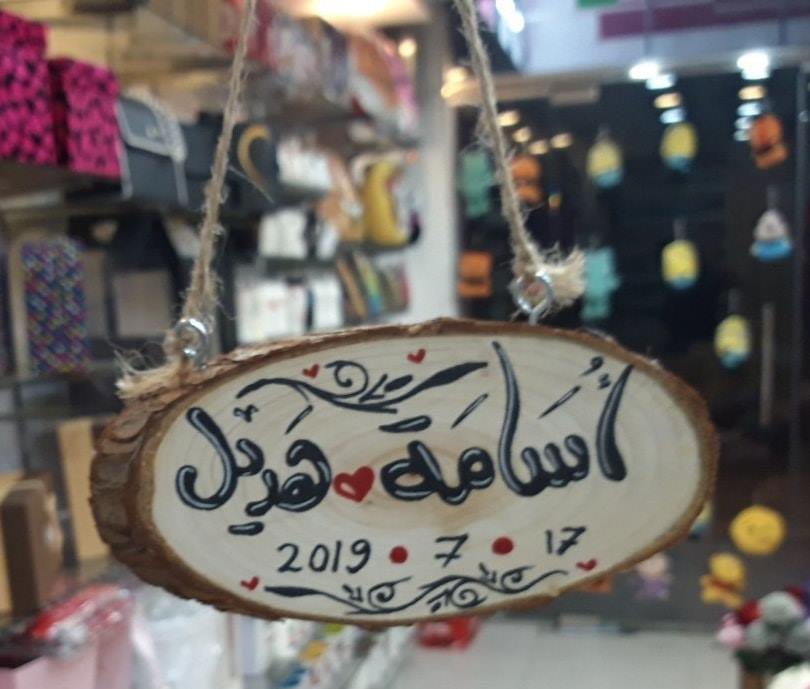 أُسَامَة هَديْل
2019 • 7 • 17